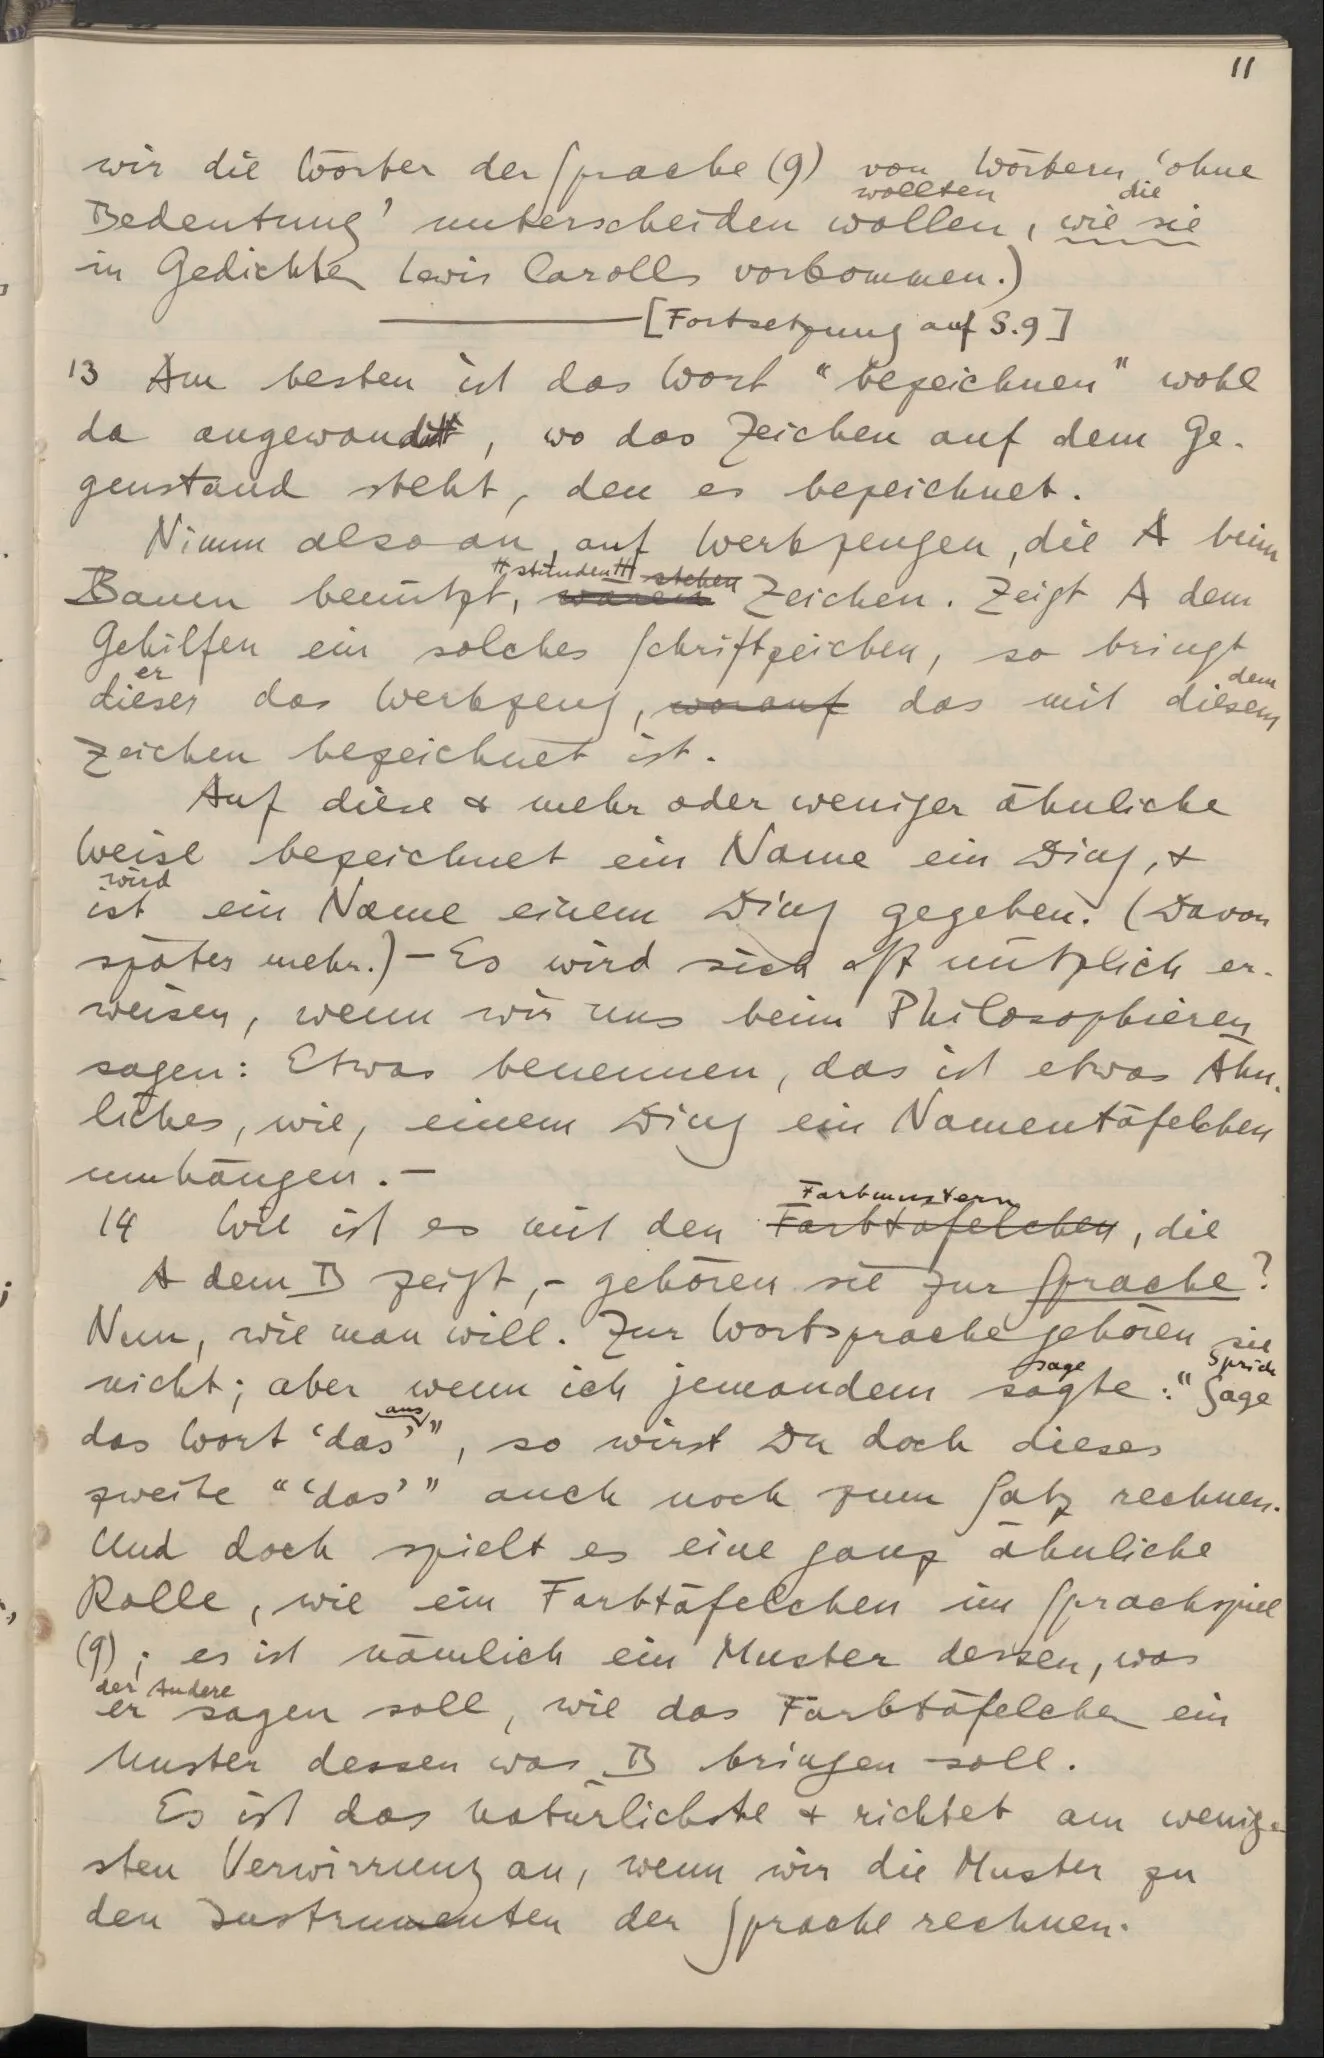 11
wir die Wörter der Sprache (9) von Wörtern ‘ohne
wollten die
Bedeutung’ unterscheiden wollen, wie sie
in Gedichten Lewis Carolls vorkommen.)
[Fortsetzung auf S.9]
13 Am besten ist das Wort “bezeichnen” wohl
da angewandt, wo das Zeichen auf dem Ge-
genstand steht, den es bezeichnet.
Nimm also an, auf Werkzeugen, die A beim
stünden stehen
Bauen benützt, waren Zeichen. Zeigt A dem
Gehilfen ein solches Schriftzeichen, so bringt
er dem
dieser das Werkzeug, worauf das mit diesem
Zeichen bezeichnet ist.
Auf diese & mehr oder weniger ähnliche
Weise bezeichnet ein Name ein Ding, &
wird
ist ein Name einem Ding gegeben. (Davon
später mehr.) – Es wird sich oft nützlich er-
weisen, wenn wir uns beim Philosophieren
sagen: Etwas benennen, das ist etwas Ähn-
liches, wie, einem Ding ein Namentäfelchen
umhängen. –
Farbmustern
14 Wie ist es mit den Farbtäfelchen, die
A dem B zeigt, – gehören sie zur Sprache?
Nun, wie man will. Zur Wortsprache gehören sie
sage Sprich
nicht; aber wenn ich jemandem sagte: “Sage
aus
das Wort ‘das’”, so wirst Du doch dieses
zweite “‘das’” auch noch zum Satz rechnen.
Und doch spielt es eine ganz ähnliche
Rolle, wie ein Farbtäfelchen im Sprachspiel
(9); es ist nämlich ein Muster dessen, was
der Andere
er sagen soll, wie das Farbtäfelchen ein
Muster dessen was B bringen soll.
Es ist das natürlichste & richtet am wenig-
sten Verwirrung an, wenn wir die Muster zu
den Instrumenten der Sprache rechnen.